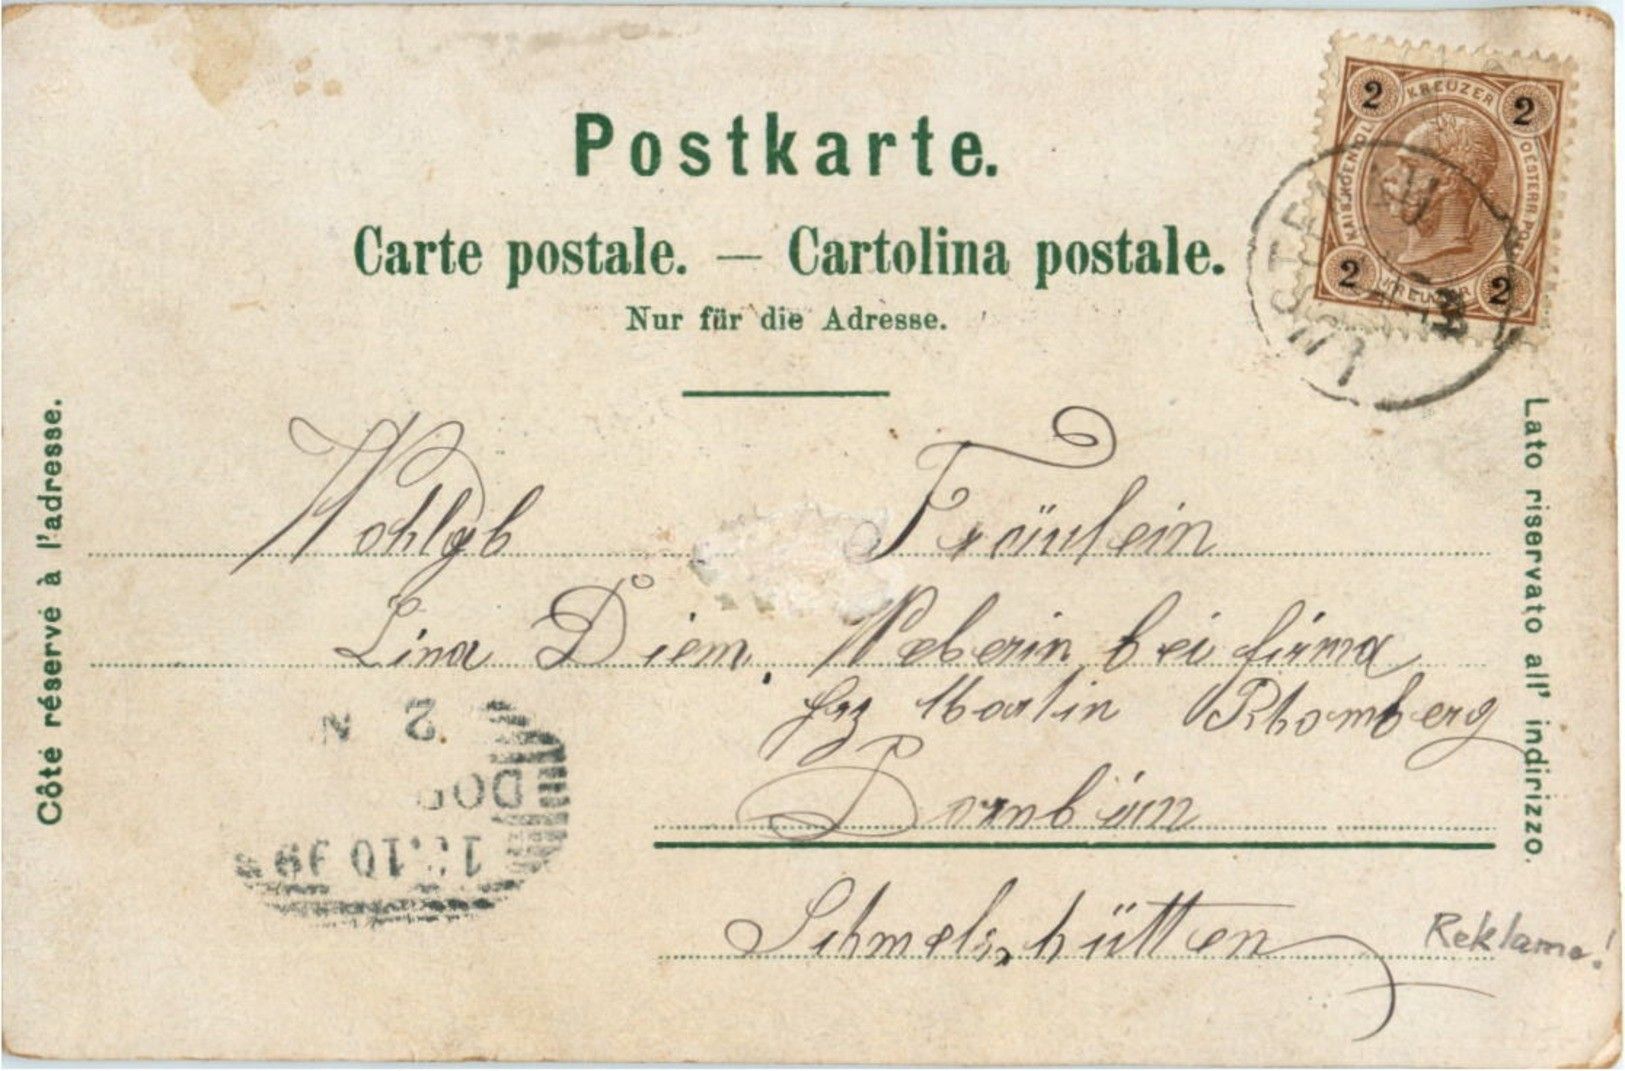 Postkarte.
Carte postale. — Cartolina postale.
Nur für die Adresse.
Côté réservé à l'adresse.
Lato riservato all' indirizzo.
2 KREUZER 2
KAIS. KOENIGL. OESTERR. POST
2 KREUZER 2
LUSTENAU
Wohlgb Fräulein
Lina Diem, Weberin bei firma
frz Martin Rhomberg
Dornbirn
Schmelzhütten
Reklame!
2 N
DOR
10 99